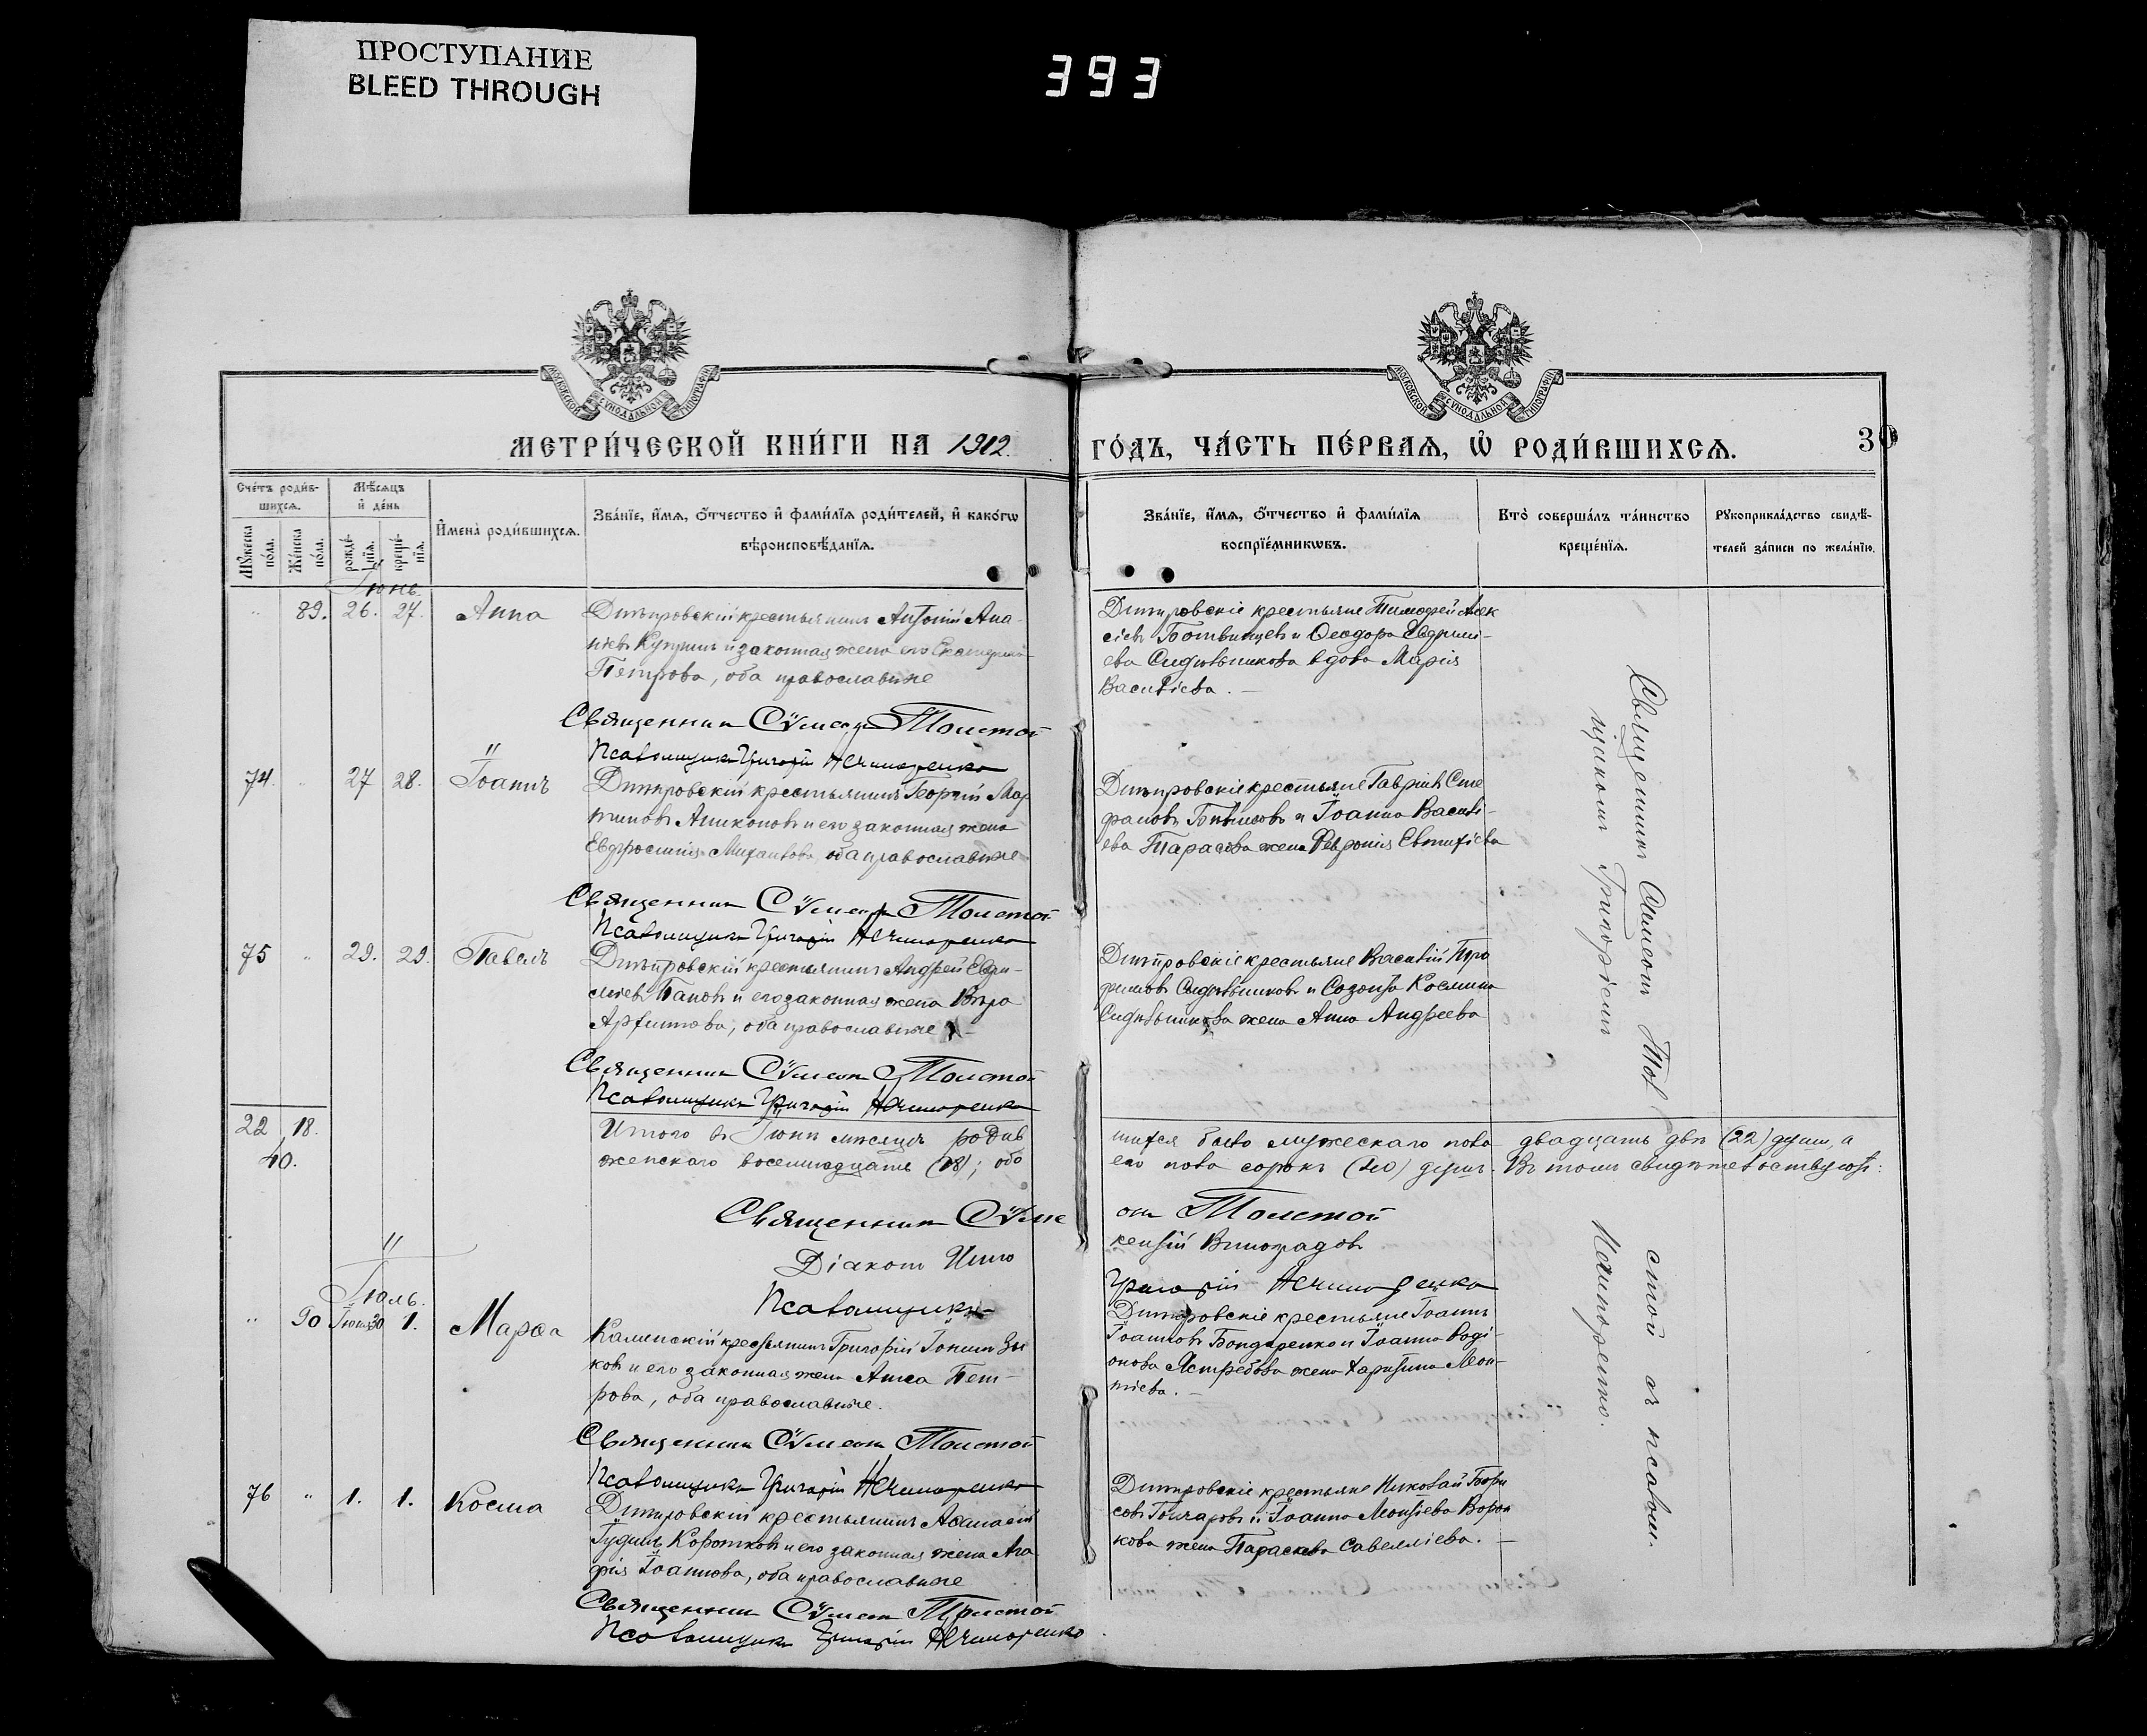 ПРОСТУПАНИЕ
BLEED THROUGH
393
МОСКОВСКОЙ СѴНОДАЛЬНОЙ ТИПОГРАФІИ
МОСКОВСКОЙ СѴНОДАЛЬНОЙ ТИПОГРАФІИ
МЕТРИ́ЧЕСКОЙ КНИ́ГИ НА 1912. ГО́ДЪ, ЧА́СТЬ ПЕ́РВАѦ, Ѡ҆ РОДИ́ВШИХСѦ. 30
Сче́тъ роди́в-
шихсѧ.
Мѣ́сѧцъ
и҆ де́нь
Мꙋ́жеска
по́ла.
Же́нска
по́ла.
рожде́-
нїѧ.
креще́-
нїѧ.
И҆мена̀ роди́вшихсѧ.
Зва́нїе, и҆́мѧ, ѻ҆́тчество и҆ фами́лїѧ роди́телей, и҆ како́гѡ
вѣроисповѣ́данїѧ.
Зва́нїе, и҆́мѧ, ѻ҆́тчество и҆ фами́лїѧ
воспрїе́мникѡвъ.
Кто̀ соверша́лъ та́инство
креще́нїѧ.
Рꙋкоприкла́дство свидѣ́-
телей за́писи по жела́нїю.
Іюнь.
" 89. 26. 27. Анна
Дмитровскій крестьянинъ Антоній Ана-
ніевъ и законная жена его Екатерина
Петрова, оба православные
Дмитровскіе крестьяне Тимофей Алек
сіевъ и Ѳеодора
вдова Марія
Василіева. —
Священникъ Сѵмеонъ Толстой
Псаломщикъ Григорій Нечипоренко
74. " 27 28. Іоаннъ
Дмитровскій крестьянинъ Георгій Мар
тиновъ и его законная жена
Евфросинія Михаилова, оба православные
Дмитровскіе крестьяне Гавріилъ Сте
фановъ и Іоанна Василі-
ева Тарасова жена Февронія Евтихіева
Священникъ Сѵмеонъ Толстой
Псаломщикъ Григорій Нечипоренко
75 " 29. 29. Павелъ
Дмитровскій крестьянинъ Андрей
Пановъ и его законная жена Вѣра
оба православные
Дмитровскіе крестьяне Василій
Сидѣльниковъ и Созонта Космина
Сидѣльникова жена Анна Андреева
Священникъ Сѵмеонъ Толстой
Псаломщикъ Григорій Нечипоренко
22 18.
40.
Итого въ Іюнѣ мѣсяцѣ родив шихся было мужескаго пола двадцать двѣ (22) души, а
женскаго восемнадцать (18); обо его пола сорокъ (40) душъ. Въ томъ свидѣтельствуютъ:
Священникъ Сѵме онъ Толстой
Діаконъ Инно кентій Виноградовъ
Псаломщикъ Григорій Нечипоренко
Іюль.
" 90 Іюня 30 1. Марѳа
Каменскій крестьянинъ Григорій Іонинъ Зы
ковъ и его законная жена Анна Пет-
рова, оба православные.
Дмитровскіе крестьяне Іоаннъ
Іоанновъ Бондаренко и Іоанна Роді-
онова Ястребова жена Харитина Леон-
тіева. —
Священникъ Сѵмеонъ Толстой
Псаломщикъ Григорій Нечипоренко
76 " 1. 1. Косма
Дмитровскій крестьянинъ Аѳанасій
Коротковъ и его законная жена Ага
фія Іоаннова, оба православные
Дмитровскіе крестьяне Николай Бори
совъ Гончаровъ и Іоанна Леонтіева Ворон
кова жена Параскева Савелліева. —
Священникъ Сѵмеонъ Толстой
Псаломщикъ Григорій Нечипоренко
Священникъ Сѵмеонъ Тол стой съ псалом-
щикомъ Григоріемъ Нечипоренко.